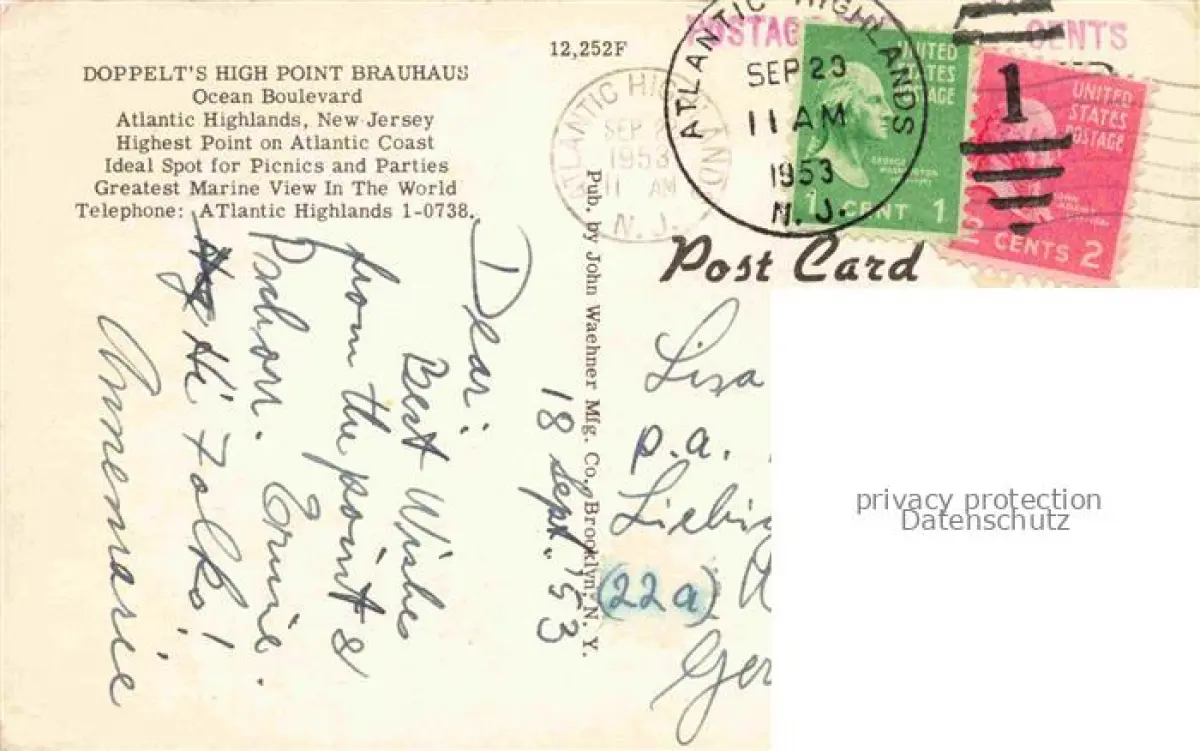 DOPPELT'S HIGH POINT BRAUHAUS
Ocean Boulevard
Atlantic Highlands, New Jersey
Highest Point on Atlantic Coast
Ideal Spot for Picnics and Parties
Greatest Marine View In The World
Telephone: ATlantic Highlands 1-0738.
12,252F
POSTAGE
CENTS
ATLANTIC HIGHLANDS
SEP 23
11 AM
1953
N. J.
ATLANTIC HIGHLAND
SEP 2
1953
11 AM
N. J.
1
UNITED
STATES
POSTAGE
GEORGE
WASHINGTON
1 CENT 1
UNITED
STATES
POSTAGE
JOHN
ADAMS
2 CENTS 2
Post Card
Pub. by John Waehner Mfg. Co., Brooklyn, N. Y.
18 Sept. '53
Dear:
Best Wishes
from the point &
Pschorr. Ernie.
Hi Folks!
Annemarie
Lisa
p.a.
Liebig
(22a)
Ger
privacy protection
Datenschutz